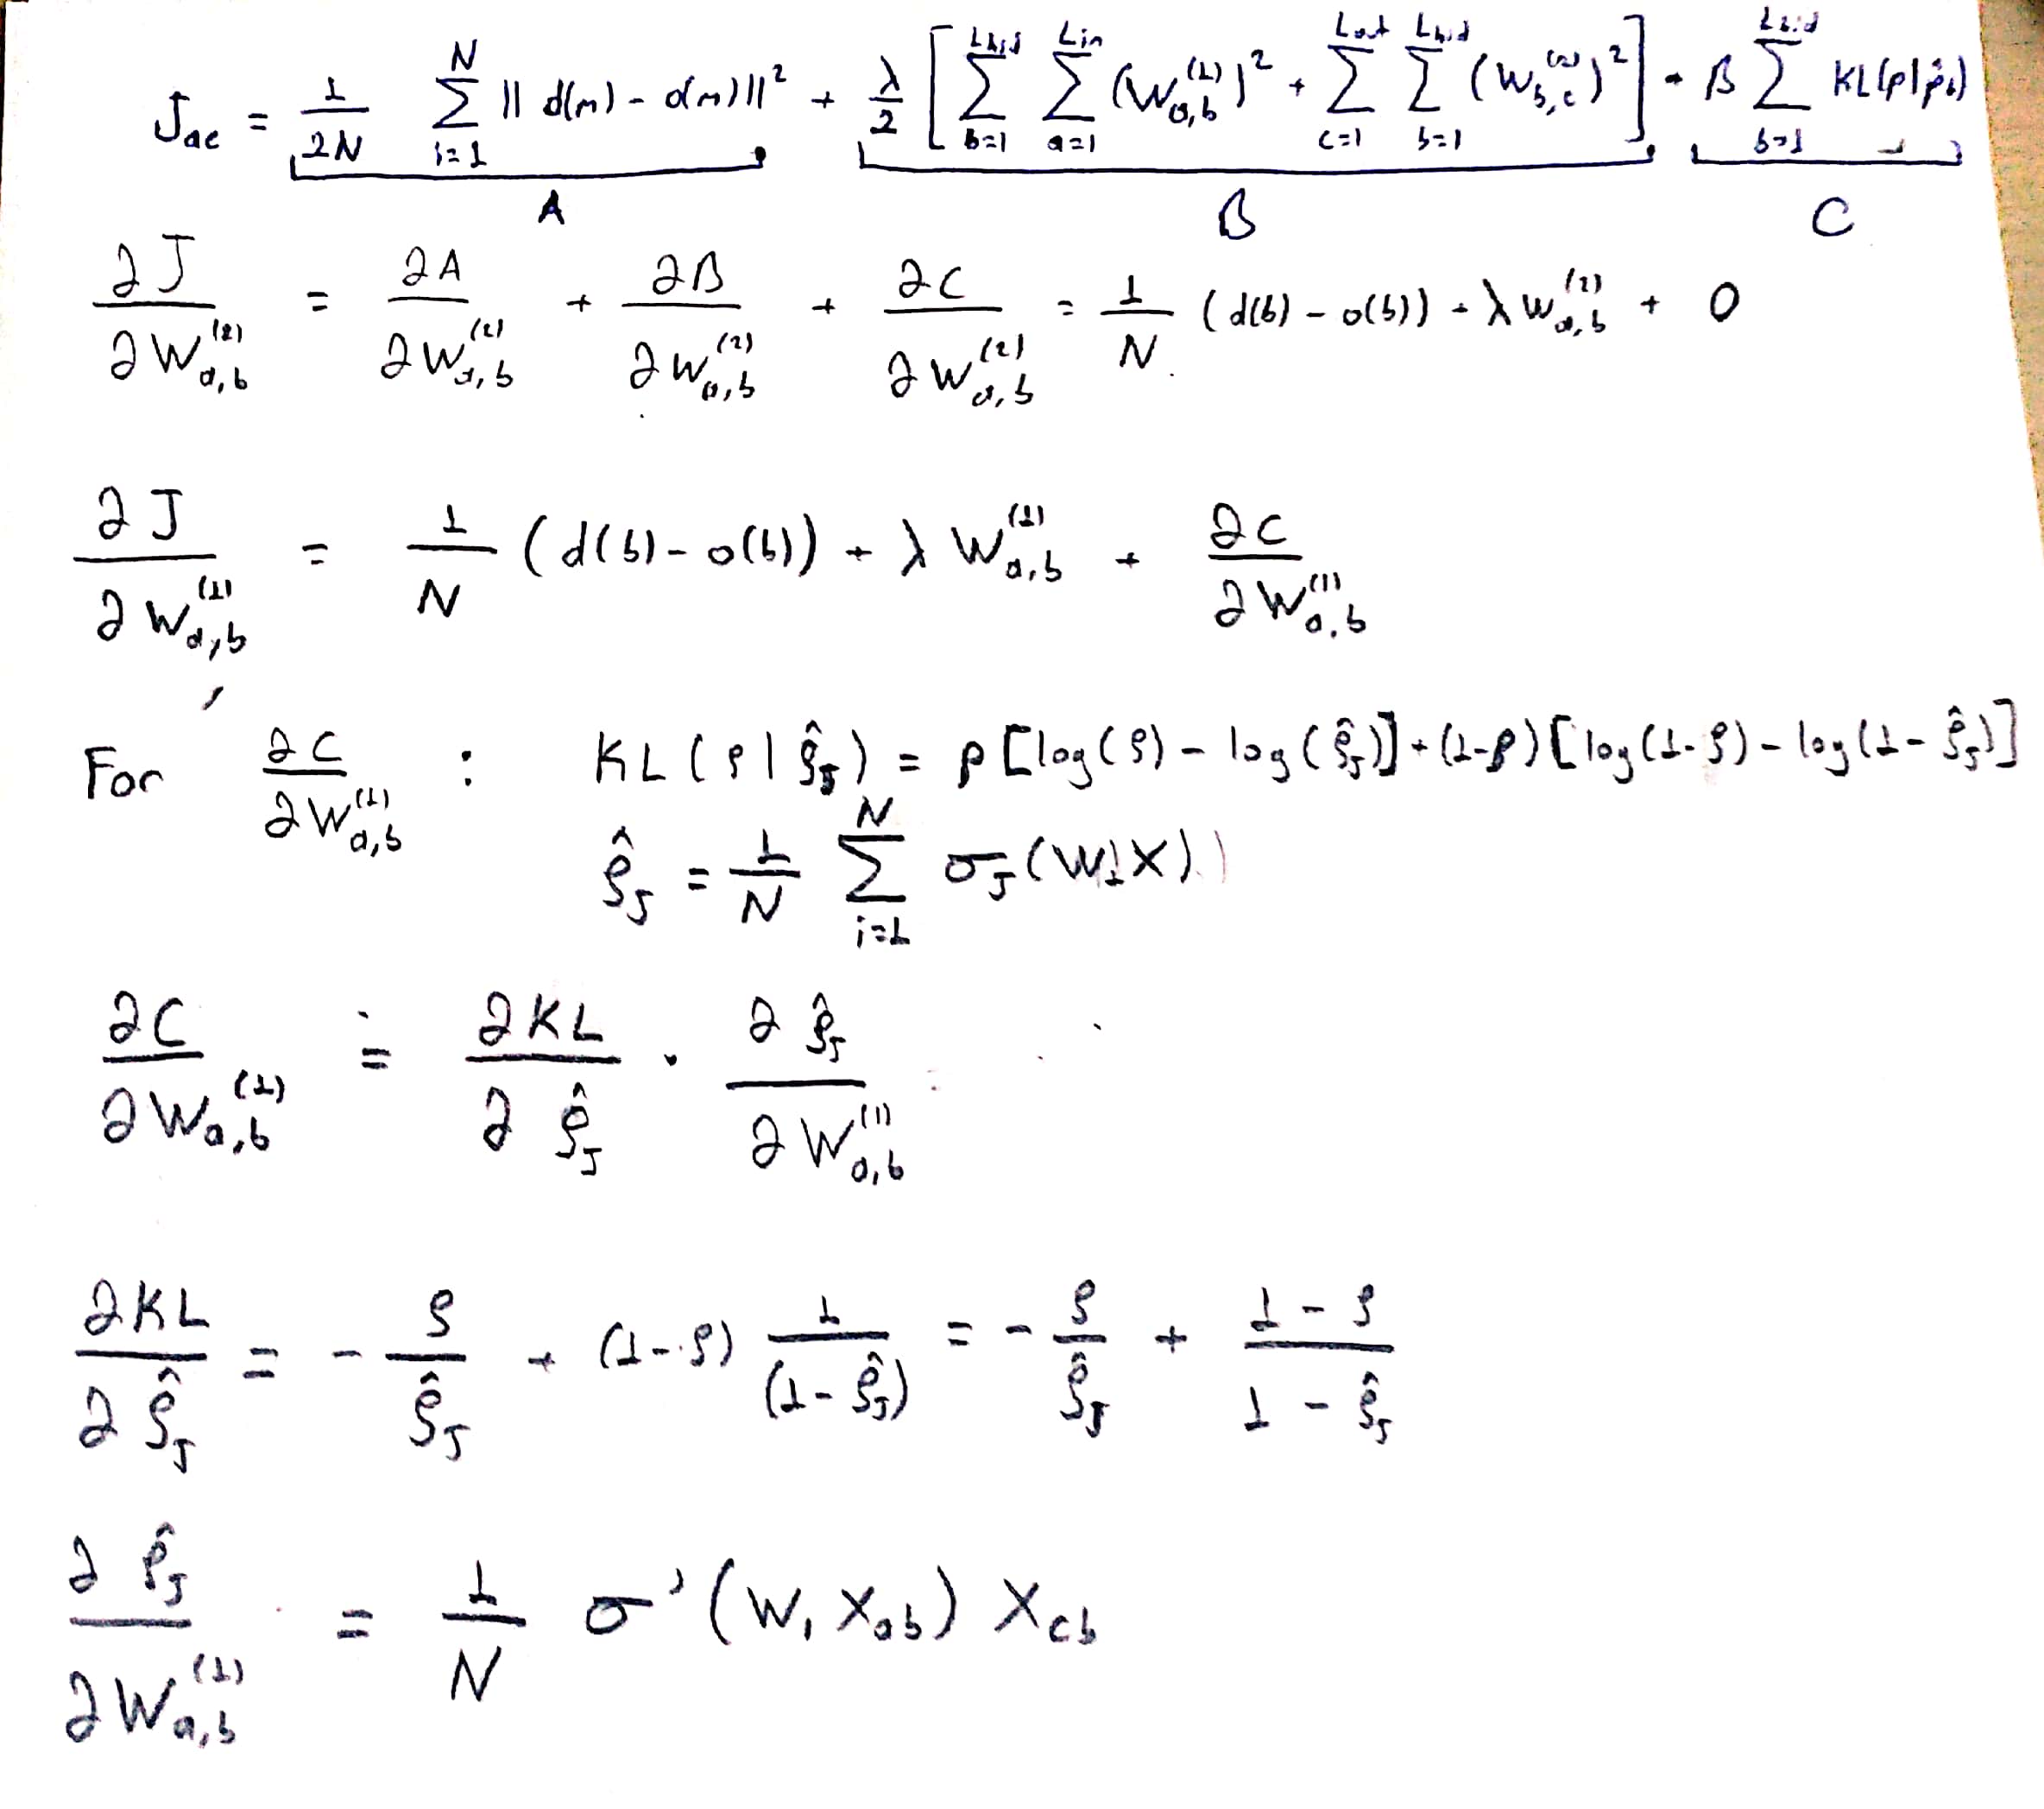 J_ae = 1/2N N Σ i=1 || d(m) - o(m) ||² + λ/2 [ Lhid Σ b=1 Lin Σ a=1 (W_a,b^(1))² + Lout Σ c=1 Lhid Σ b=1 (W_b,c^(2))² ] + β Lhid Σ b=1 KL(ρ|ρ̂_b)
A B C
∂J/∂W_a,b^(2) = ∂A/∂W_a,b^(2) + ∂B/∂W_a,b^(2) + ∂C/∂W_a,b^(2) = 1/N (d(b) - o(b)) + λ W_a,b^(2) + 0
∂J/∂W_a,b^(1) = 1/N (d(b) - o(b)) + λ W_a,b^(1) + ∂C/∂W_a,b^(1)
For ∂C/∂W_a,b^(1) : KL(ρ|ρ̂_J) = ρ[log(ρ) - log(ρ̂_J)] + (1-ρ)[log(1-ρ) - log(1-ρ̂_J)]
ρ̂_J = 1/N N Σ i=1 σ_J(W_1X)
∂C/∂W_a,b^(1) = ∂KL/∂ρ̂_J · ∂ρ̂_J/∂W_a,b^(1)
∂KL/∂ρ̂_J = - ρ/ρ̂_J + (1-ρ) 1/(1-ρ̂_J) = - ρ/ρ̂_J + 1-ρ/1-ρ̂_J
∂ρ̂_J/∂W_a,b^(1) = 1/N σ'(W_1 X_ab) X_cb